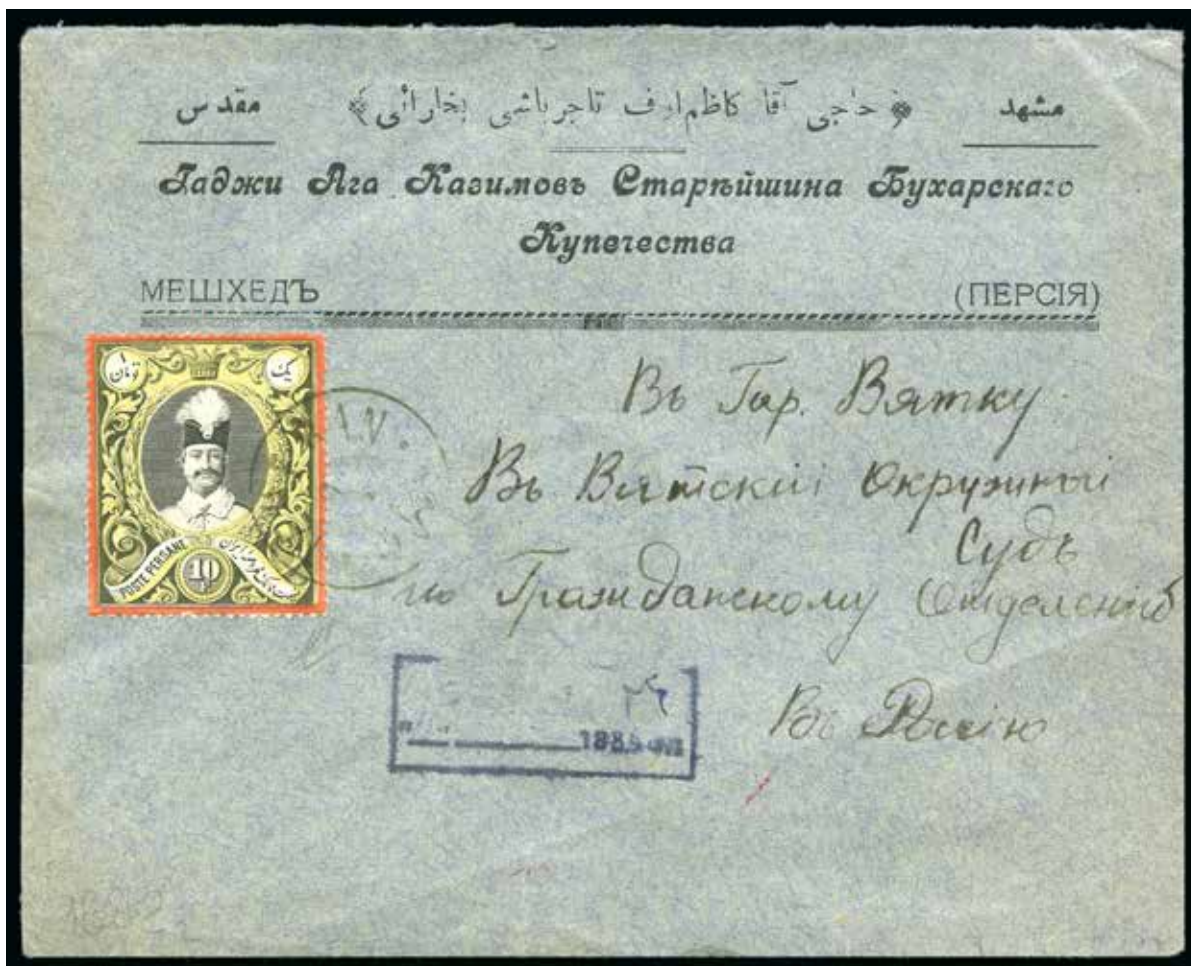 مشهد ﴿ حاجی آقا کاظم‌اوف تاجرباشی بخارائی ﴾ مقدس
Гаджи Ага Казимовъ Старѣйшина Бухарскаго
Купечества
МЕШХЕДЪ (ПЕРСІЯ)
تومان ۱ یک
POSTE PERSANE
10
Въ Гор. Вятку
Въ Вятскій Окружной
Судъ
по Гражданскому Отделенію
Въ Россію